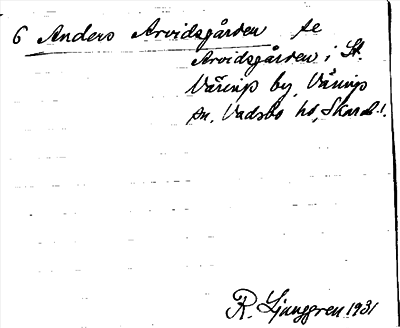 6 Anders Arvidsgården se
Arvidsgården i St.
Väring by, Vårings
sn, Vadsbo hd, Skarab. l.
R. Ljunggren 1931